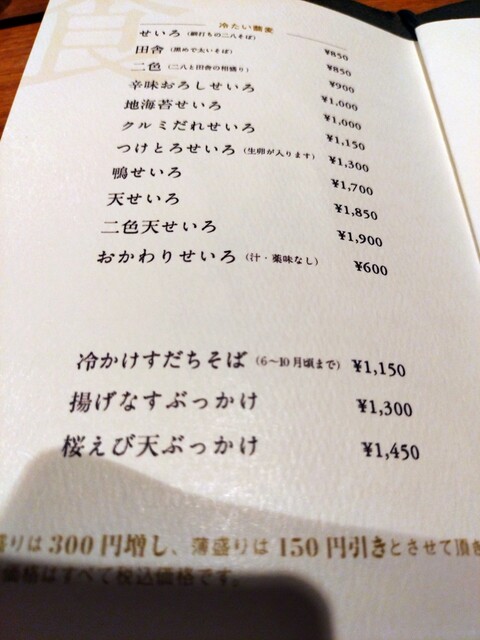 食
冷たい蕎麦
せいろ（細打ちの二八そば） ¥850
田舎（黒めで太いそば） ¥850
二色（二八と田舎の相盛り） ¥900
辛味おろしせいろ ¥1,000
地海苔せいろ ¥1,000
クルミだれせいろ ¥1,150
つけとろせいろ（生卵が入ります） ¥1,300
鴨せいろ ¥1,700
天せいろ ¥1,850
二色天せいろ ¥1,900
おかわりせいろ（汁・薬味なし） ¥600
冷かけすだちそば（6〜10月頃まで） ¥1,150
揚げなすぶっかけ ¥1,300
桜えび天ぶっかけ ¥1,450
盛りは300円増し、薄盛りは150円引きとさせて頂き
価格はすべて税込価格です。